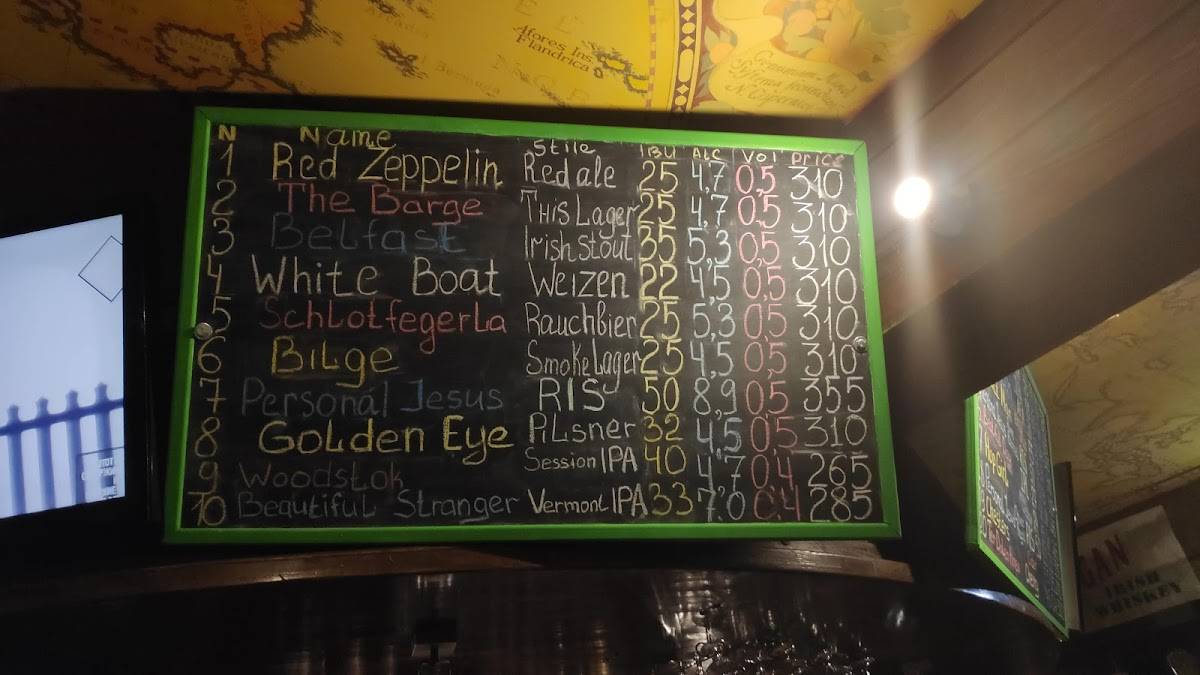 Afores Ins.
Flandrica
N Name Stile IBU Alc Vol Price
1 Red Zeppelin Red ale 25 4,7 0,5 310
2 The Barge This Lager 25 4,7 0,5 310
3 Belfast Irish Stout 35 5,3 0,5 310
4 White Boat Weizen 22 4,5 0,5 310
5 Schlotfegerla Rauchbier 25 5,3 0,5 310
6 Bilge Smoke Lager 25 4,5 0,5 310
7 Personal Jesus RIS 50 8,9 0,5 355
8 Golden Eye Pilsner 32 4,5 0,5 310
9 Woodstok Session IPA 40 4,7 0,4 265
10 Beautiful Stranger Vermont IPA 33 7,0 0,4 285
GAN
IRISH
WHISKEY